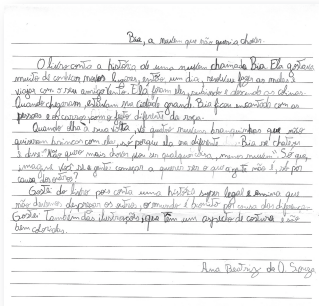 Bia, a nuvem que não queria chover.
O livro conta a história de uma nuvem chamada Bia. Ela gostava
muito de conhecer novos lugares, então um dia, resolveu fazer as malas e
viajar com o seu amigo vento. E lá foram eles, subindo e descendo as
Quando chegaram, estavam na cidade grande. Bia ficou encantada com as
pessoas e as casas, com o jeito diferente da roça.
Quando olha a sua volta, vê quatro nuvens branquinhas que não
quiseram brincar com ela, só porque ela era diferente. Bia se chateia
e disse "Não quero mais chover, quero ser qualquer coisa, menos nuvem". Só que,
imagine você se a gente começar a querer ser o que a gente não é, só por
causa dos outros?
Gostei do livro pois conta uma história super legal e ensina que
não devemos desprezar os outros, o mundo é bonito por causa das diferenças.
Gostei também das ilustrações, que têm um aspecto de costura e são
bem coloridas.
Ana Beatriz de O. Souza